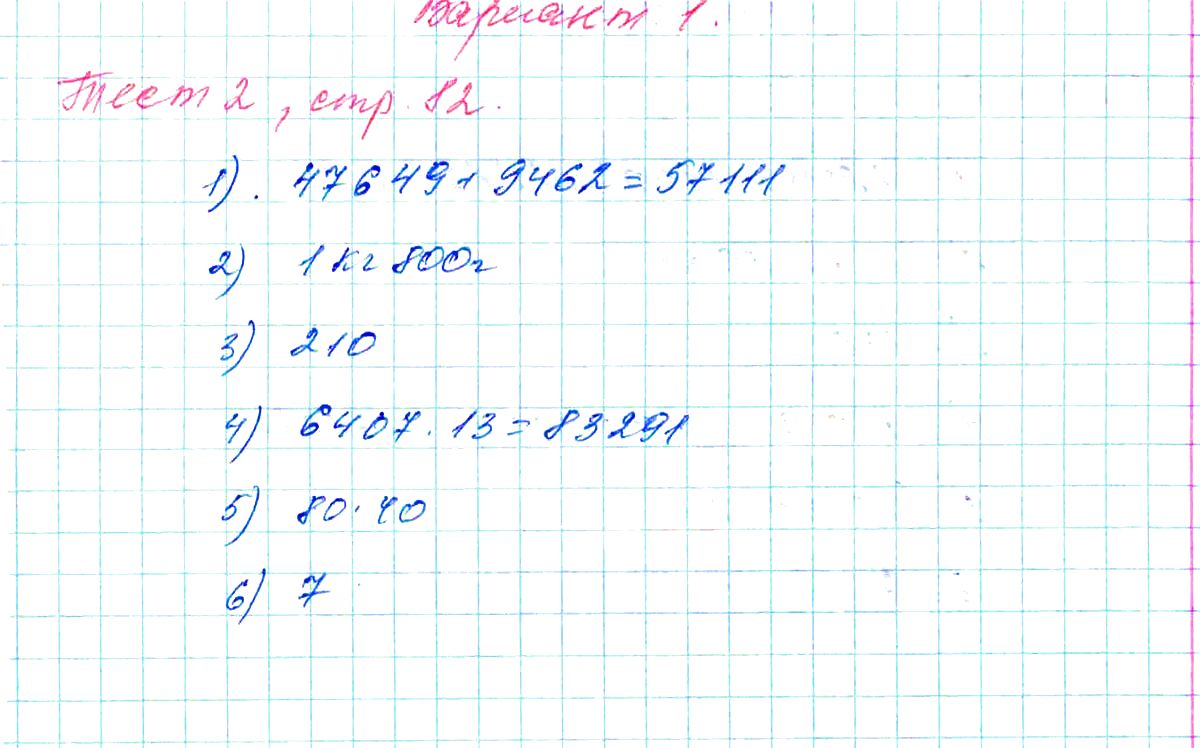 Вариант 1.
Тест 2, стр. 82.
1). 47649 + 9462 = 57111
2) 1 кг 800г
3) 210
4) 6407 · 13 = 83291
5) 80 · 40
6) 7